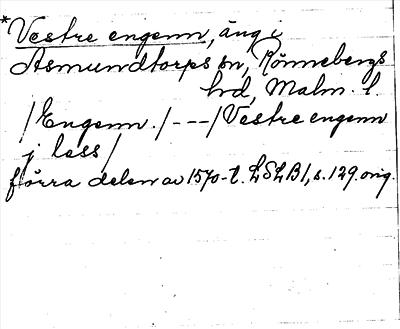 *Vestre engenn, äng i
Asmundtorps sn, Rönnebergs
hd, Malm. l.
/Engenn./---/Vestre engenn
j lass/
förra delen av 1570-t. LSLB1, s. 129. orig.